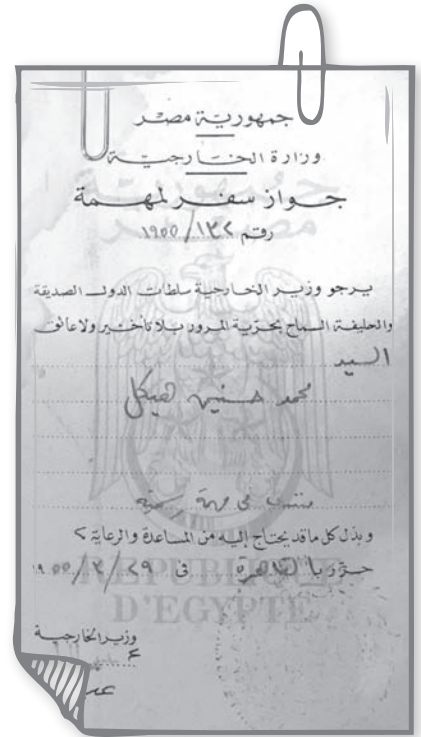 جمهورية مصر
وزارة الخارجية
جواز سفر لمهمة
رقم ١٣٢/١٩٥٥
يرجو وزير الخارجية سلطات الدول الصديقة
والحليفة السماح بحرية المرور بلا تأخير ولا عائق
السيد
محمد حسنين هيكل
منتدب في مهمة رسمية
وبذل كل ما قد يحتاج إليه من المساعدة والرعاية
حرر بالقاهرة في ٢٩/٣/١٩٥٥
REPUBLIQUE
D'EGYPTE
وزير الخارجية